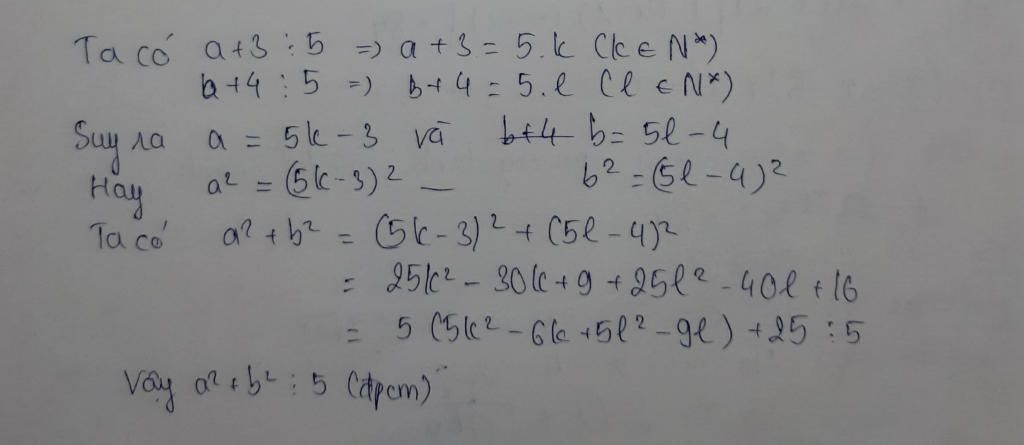 Ta có a+3 ⋮ 5 => a + 3 = 5.k (k ∈ N*)
b+4 ⋮ 5 => b+4 = 5.l (l ∈ N*)
Suy ra a = 5k - 3 và b+4 b = 5l - 4
Hay a² = (5k-3)² — b² = (5l - 4)²
Ta có a² + b² = (5k-3)² + (5l-4)²
= 25k² - 30k + 9 + 25l² - 40l + 16
= 5 (5k² - 6k + 5l² - 9l) + 25 ⋮ 5
Vậy a² + b² ⋮ 5 (đpcm)